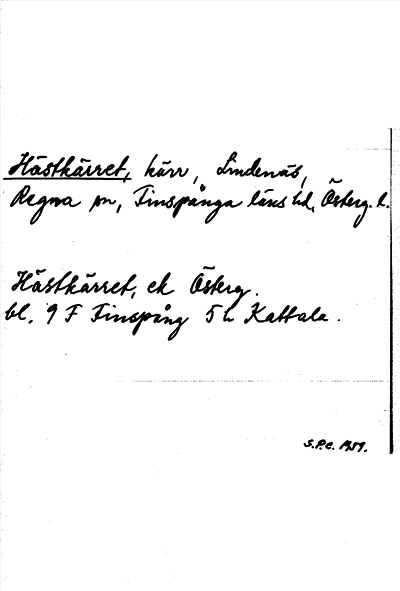 Hästkärret, kärr, Lindenäs,
Regna sn, Finspånga läns hd, Österg. l.
Hästkärret, ek Österg.
bl. 9 F Finspång 5 h Kattala.
S.P.C. 1959.